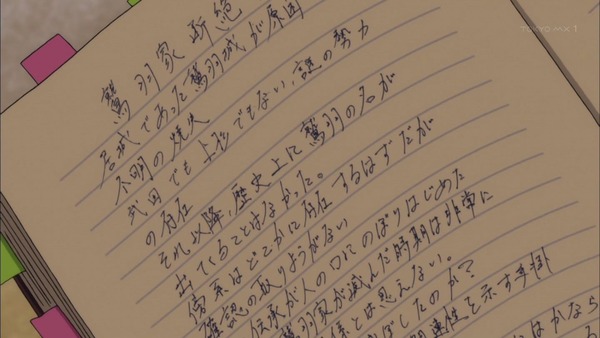 TOKYO MX1
鷲羽家断絶
居城であった鷲羽城が原因
不明の焼失
武田でも上杉でもない、謎の勢力
の存在
それ以降、歴史上に鷲羽の名が
出てくることはなかった。
傍系はどこかに存在するはずだが
確認の取りようがない
伝承が人の口にのぼりはじめた
鷲羽家が滅んだ時期は非常に
係とは思えない。
ぼしたのか?
関連性を示す手掛
はかなら